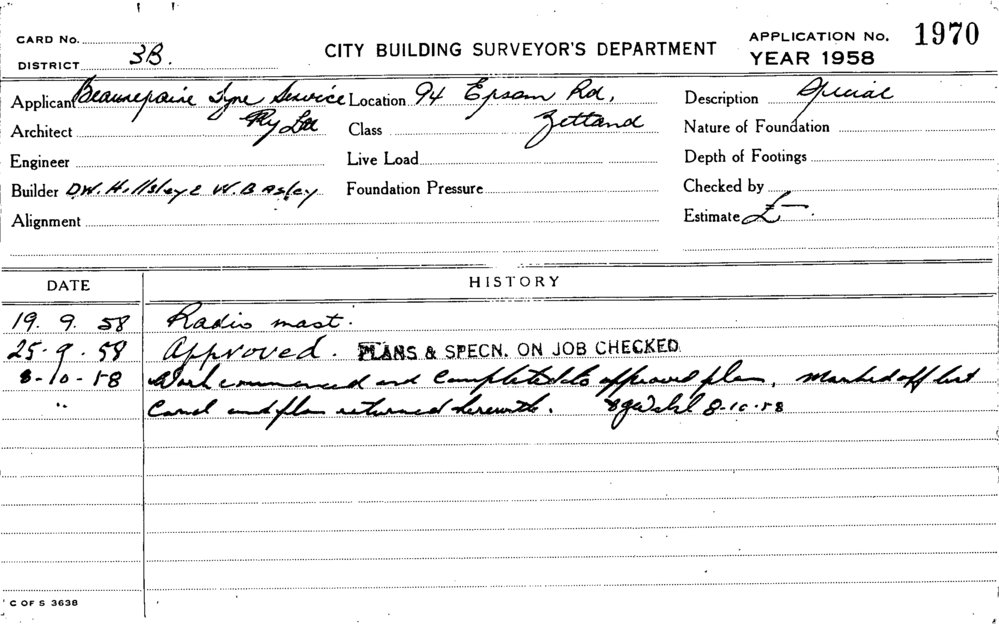 CARD No.
DISTRICT 3B.
CITY BUILDING SURVEYOR'S DEPARTMENT
APPLICATION No. 1970
YEAR 1958
Applicant Beaurepaire Tyre Service Location 94 Epsom Rd, Description Special
Architect Pty Ltd Class Zetland Nature of Foundation
Engineer Live Load Depth of Footings
Builder D.W. Hillsley & W. Basley Foundation Pressure Checked by
Alignment Estimate £—.
DATE HISTORY
19. 9. 58 Radio mast.
25-9.58 Approved. PLANS & SPECN. ON JOB CHECKED
8-10-58 Work commenced and completed to approved plan, Marked off list
" Card and plan returned herewith. 8-10-58
C OF S 3638